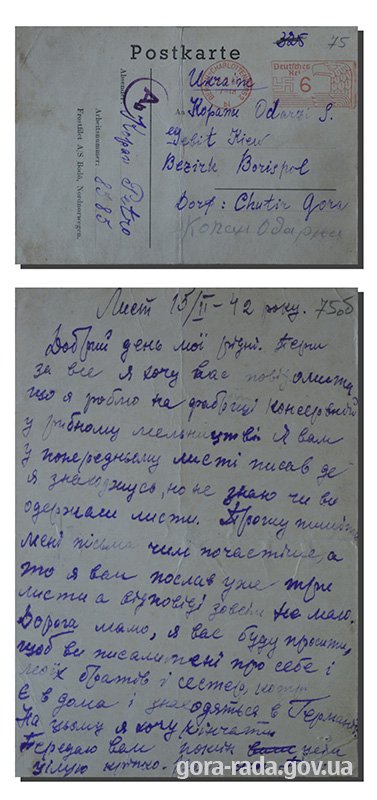 325
75
Postkarte
Deutsches
Reich
6
Absender:
Копан Petro
Arbeitsnummer: 8285
Frostfilet A.S. Bodö, Nordnorwegen.
An
Ukraine
Kopani Odarzi S.
Gebit Kiew
Bezirk Borispol
Dorf: Chutir Gora
Копан Одарки
Лист 15/II - 42 року.
75об
Добрий день мої рідні. Перш
за все я хочу вас повідомить,
що я роблю на фабриці консервній
у рибному
Я вам
у попередньому листі писав де
я знаходжусь, но не знаю чи ви
одержали листи. Прошу пишіть
мені письма чим почастіше, а
то я вам послав уже три
листи а відповіді зовсім не маю.
Дорога мамо, я вас буду просити,
щоб ви писали мені про себе і
моїх братів і сестер, котрі
є в дома і знаходяться в Германії.
На цьому я хочу кінчати.
Передаю вам
цілую кріпко.
gora-rada.gov.ua